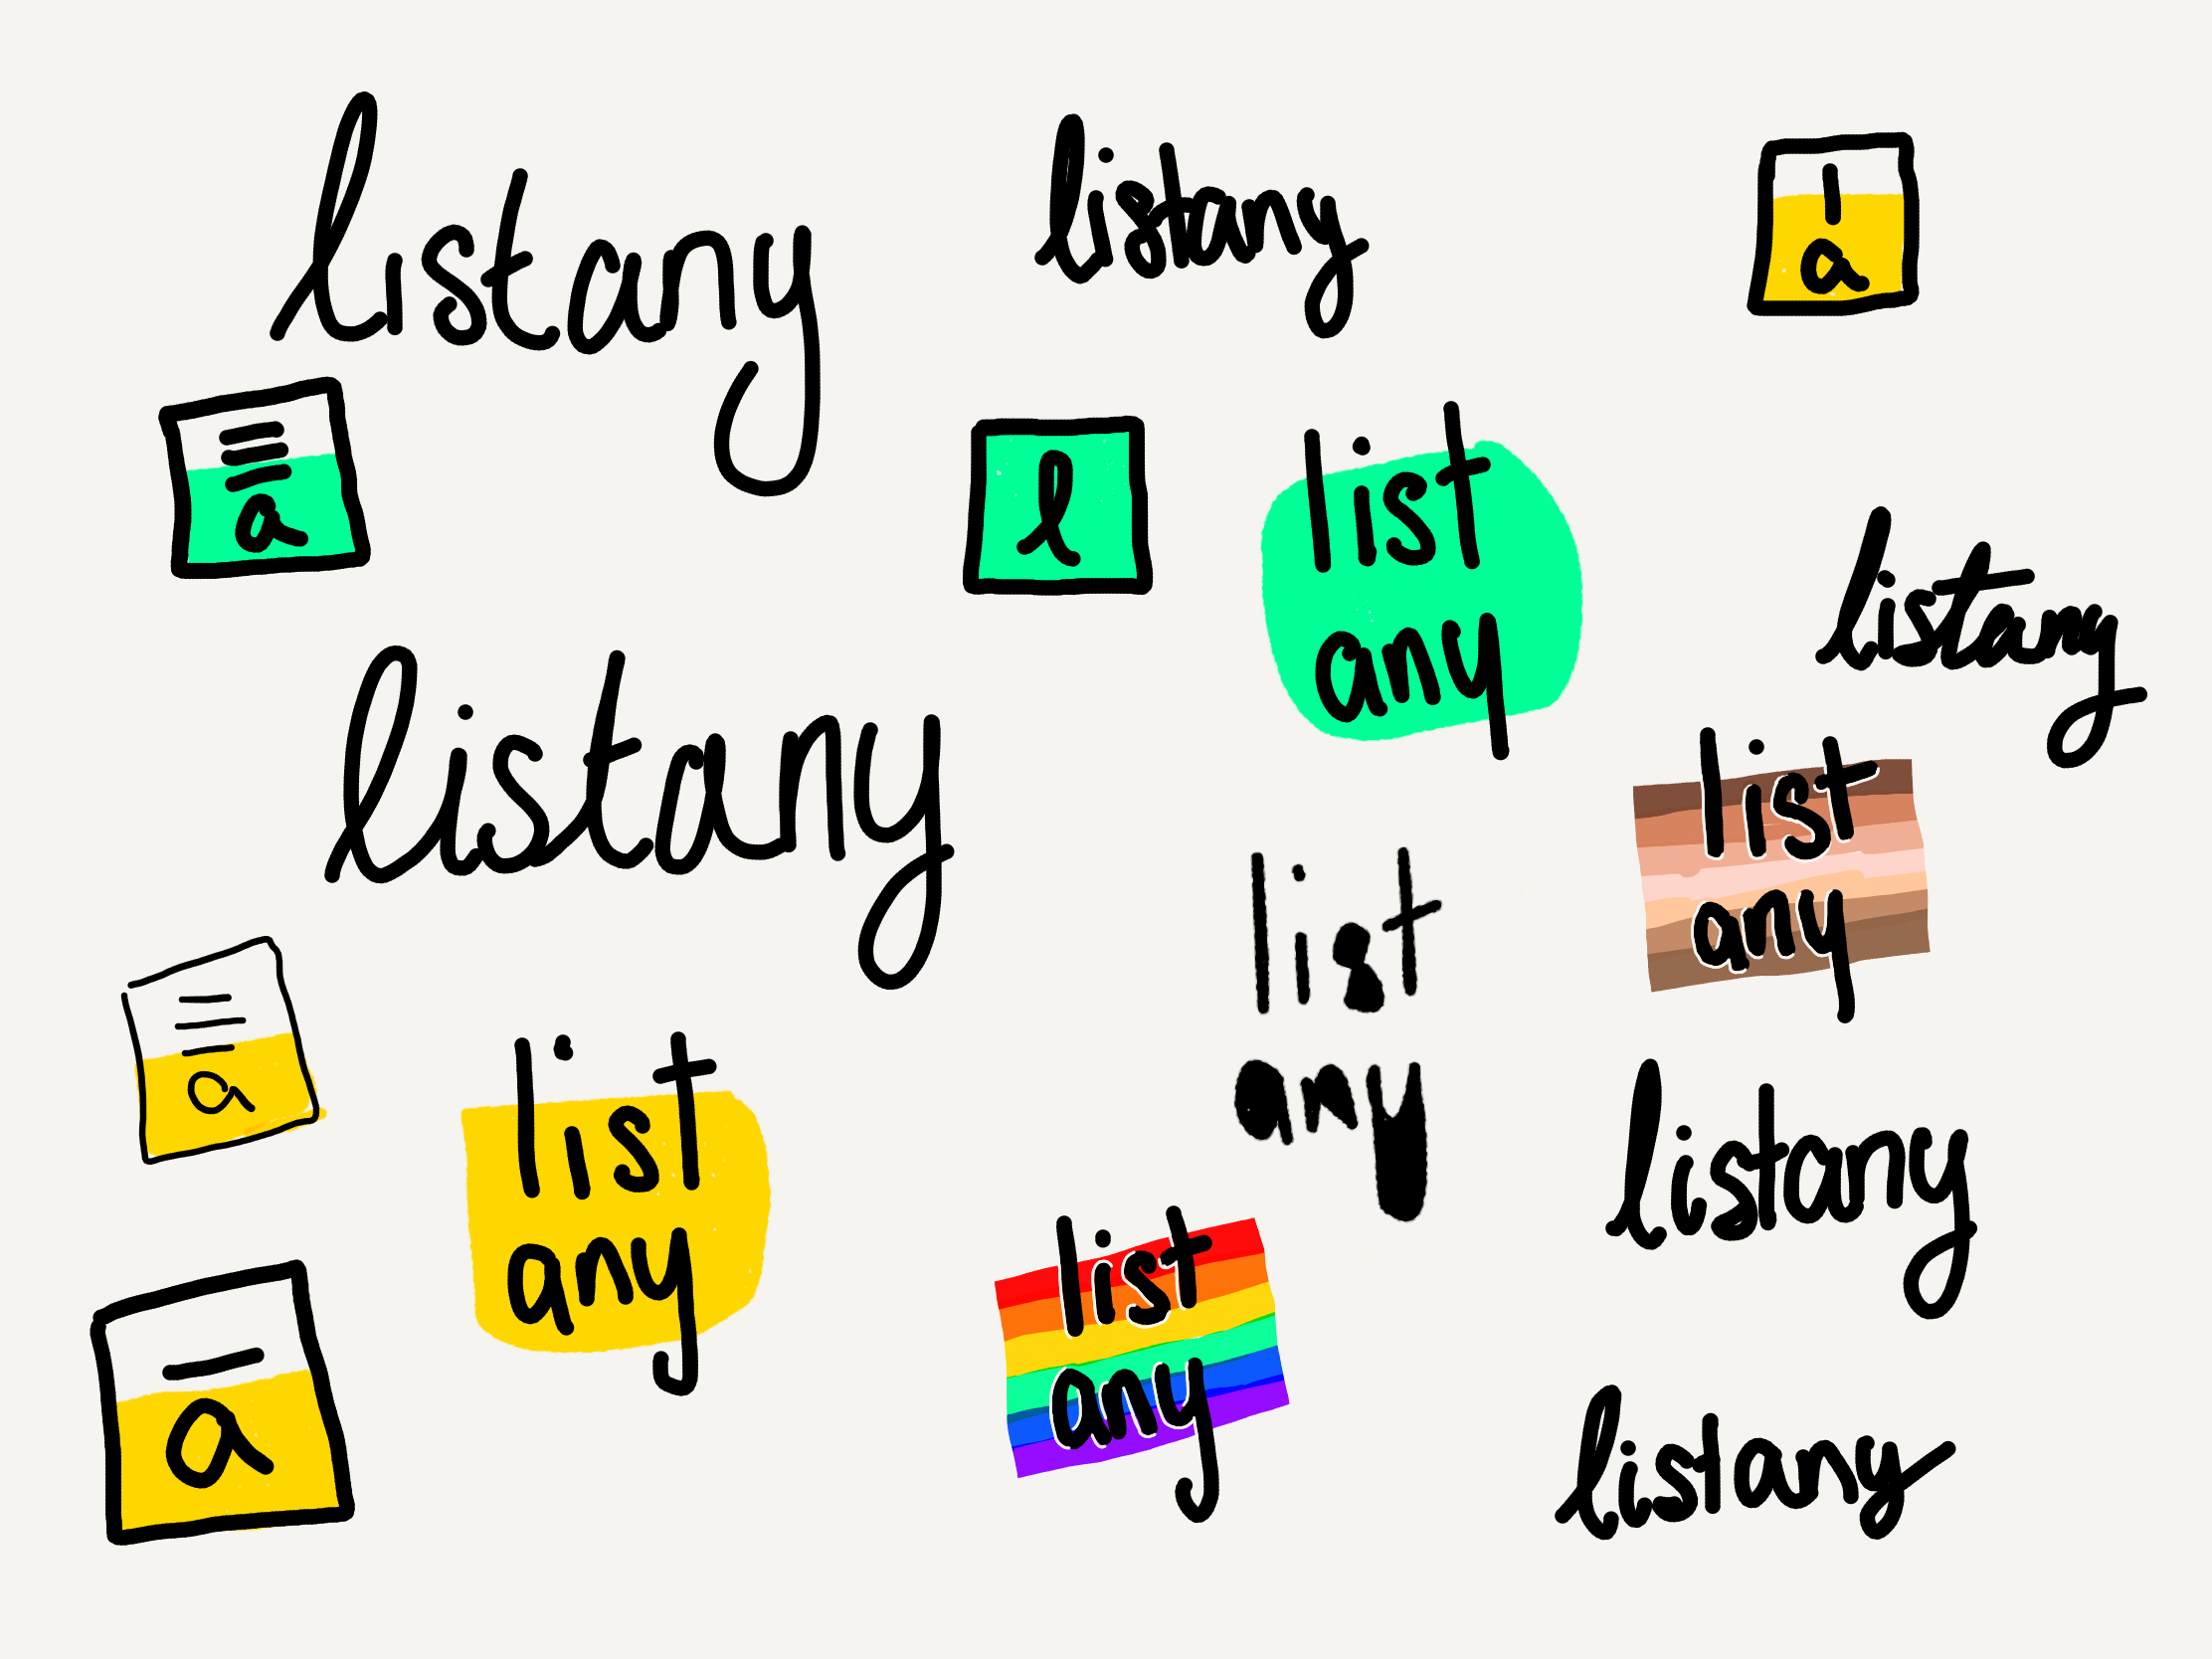 listany
listany
l
a
a
l
list
any
listany
listany
list
any
list
any
a
list
any
listany
list
any
a
listany